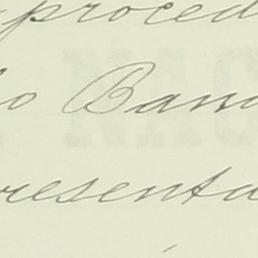 proced
o Ban
resenta